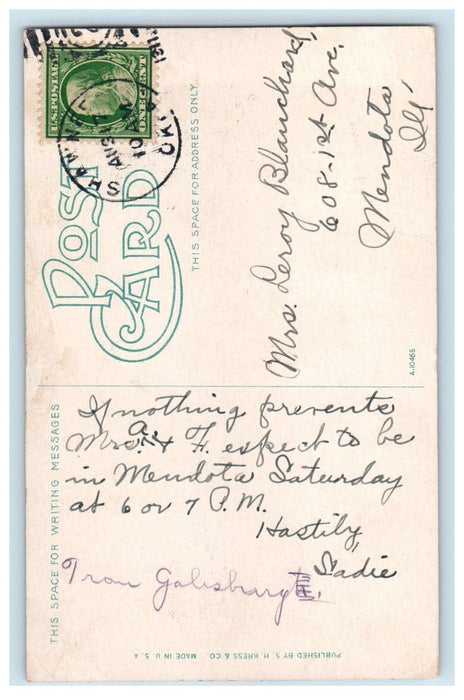 POST
CARD
THIS SPACE FOR ADDRESS ONLY.
U.S. POSTAGE
Mrs. Leroy Blanchard,
608-1st Ave.
Mendota
Ill.
A-10465
THIS SPACE FOR WRITING MESSAGES
If nothing prevents
Mrs. A. & F. espect to be
in Mendota Saturday
at 6 or 7 P.M.
Hastily,
Sadie
From Galesburg
PUBLISHED BY S. H. KRESS & CO. MADE IN U. S. A